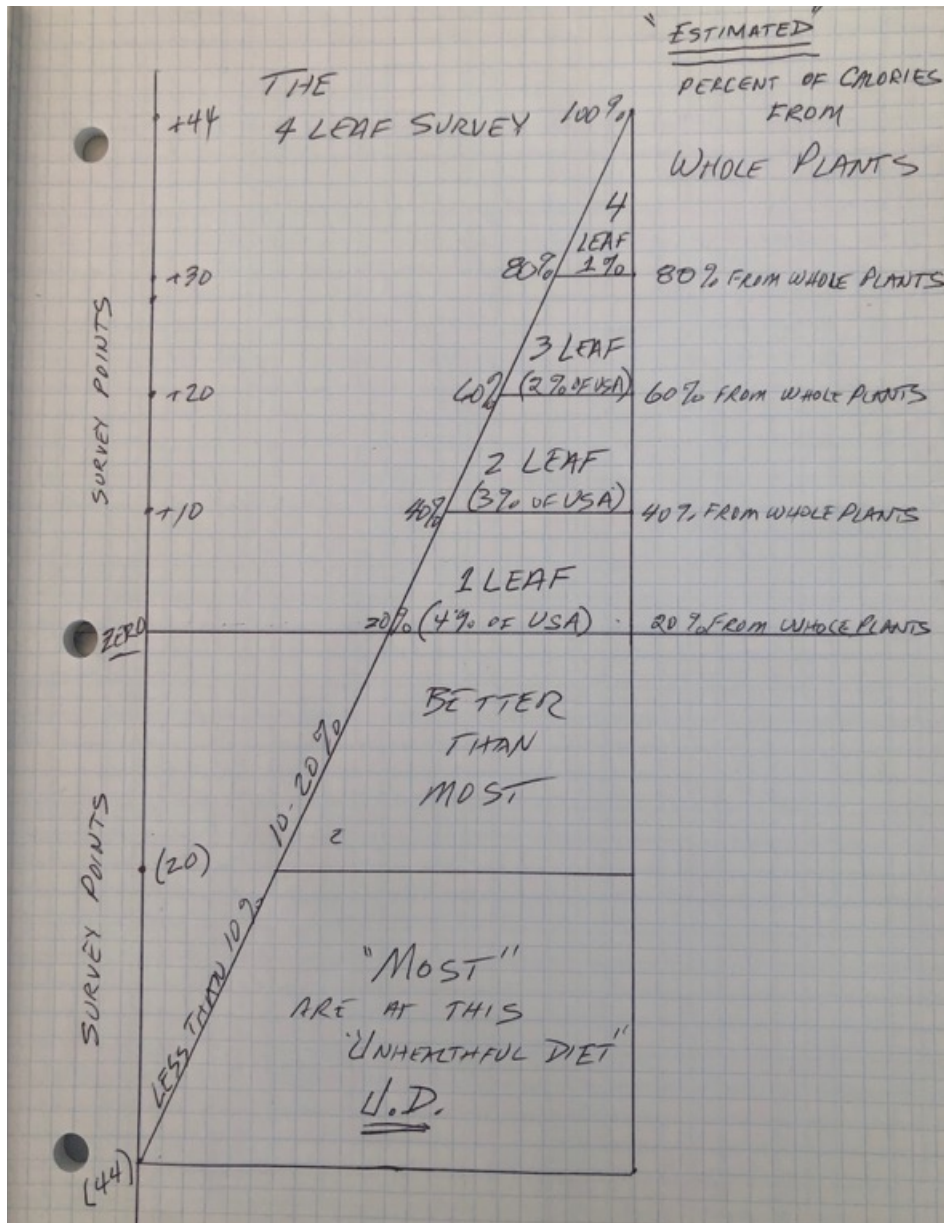 "ESTIMATED"
PERCENT OF CALORIES
FROM
WHOLE PLANTS
THE
4 LEAF SURVEY
+44
100%
4
LEAF
1%
+30
80%
80% FROM WHOLE PLANTS
3 LEAF
(2% OF USA)
+20
60%
60% FROM WHOLE PLANTS
SURVEY POINTS
2 LEAF
(3% OF USA)
+10
40%
40% FROM WHOLE PLANTS
1 LEAF
ZERO
20% (4% OF USA)
20% FROM WHOLE PLANTS
BETTER
THAN
MOST
10-20%
(20)
SURVEY POINTS
LESS THAN 10%
"MOST"
ARE AT THIS
"UNHEALTHFUL DIET"
U.D.
(44)